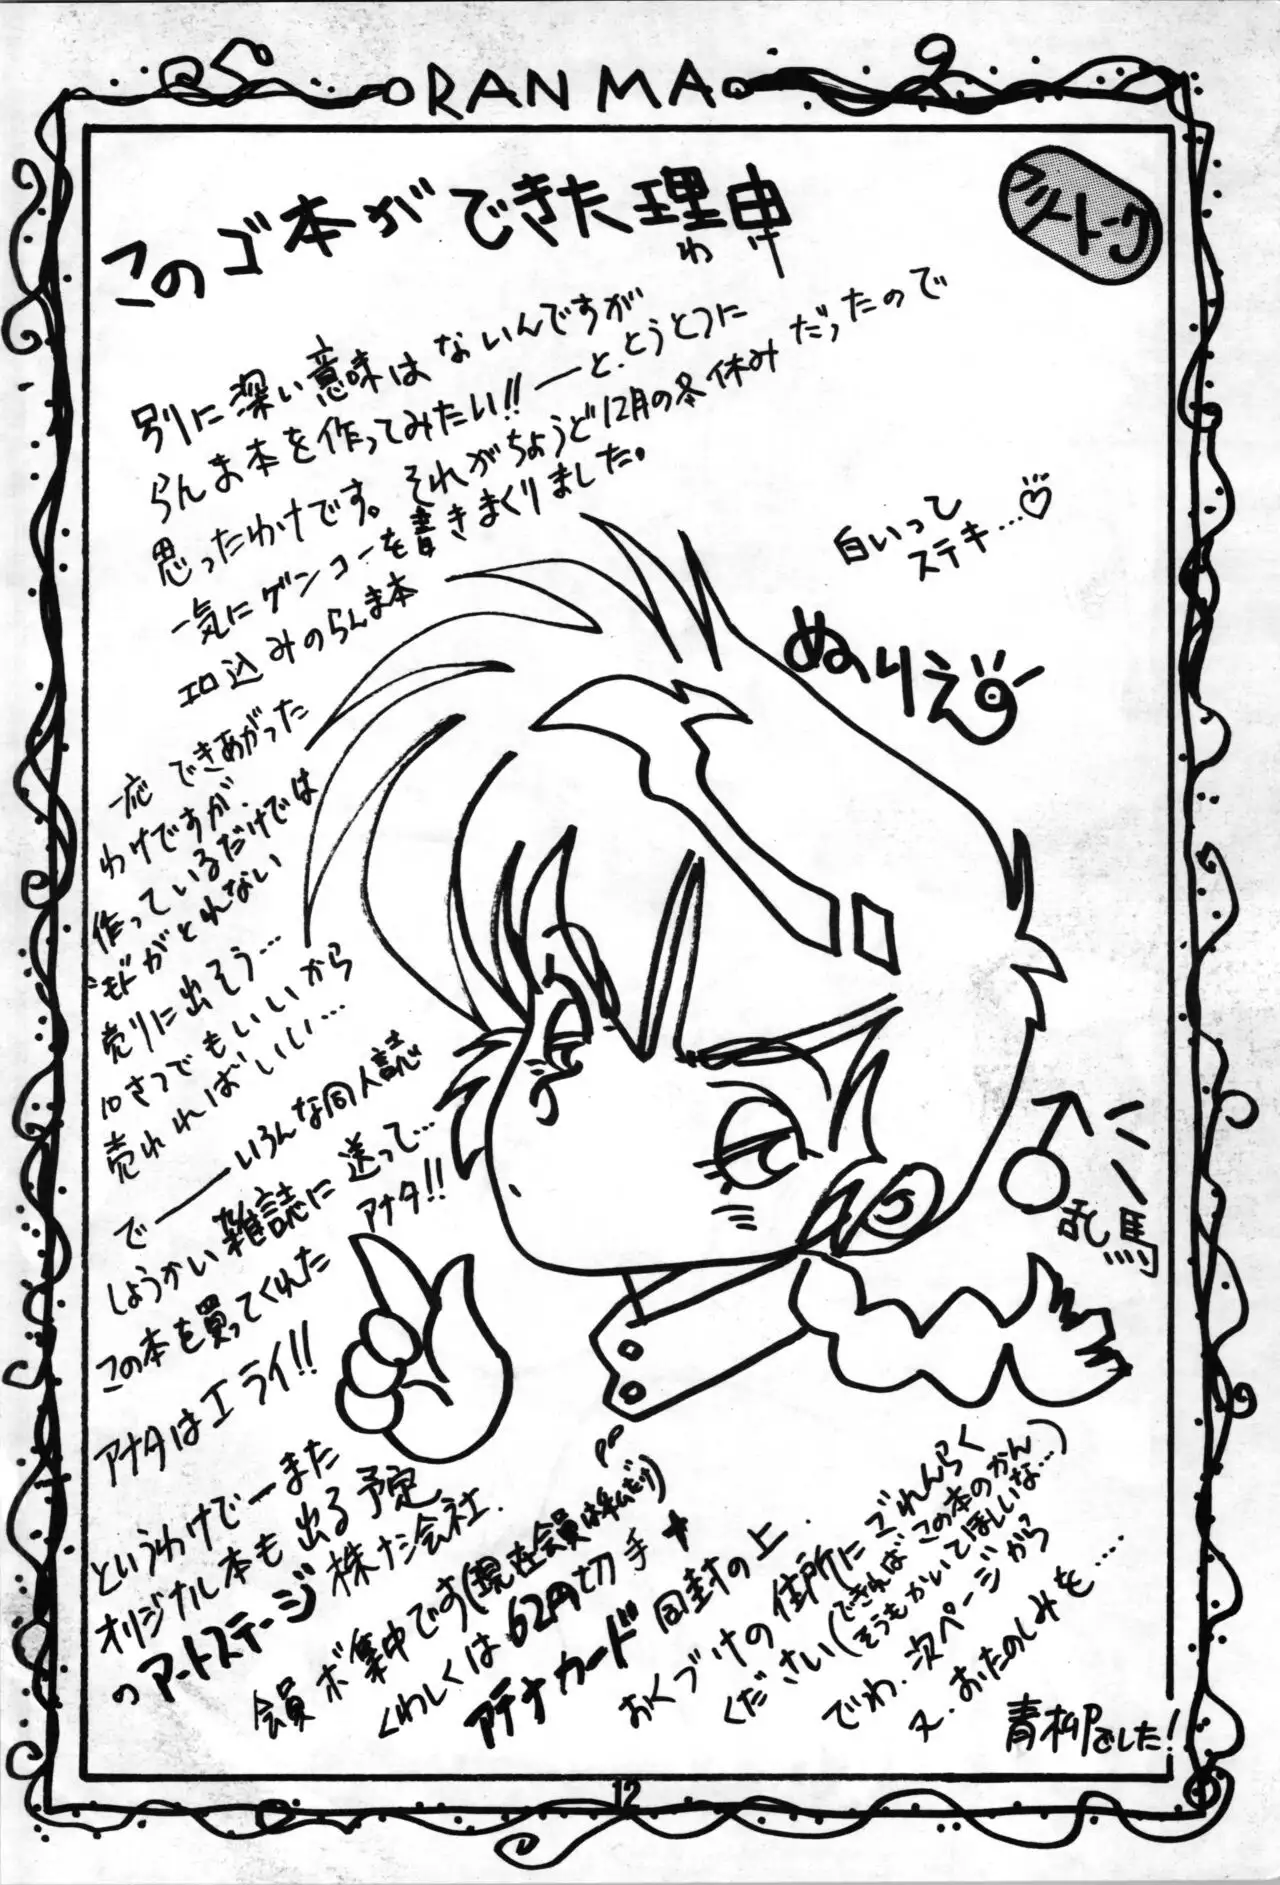 RANMA
フリートーク
このゴ本ができた理由
わけ
別に深い意味はないんですが
らんま本を作ってみたい!!──と、とうとつに
思ったわけです。それがちょうど12月の冬休みだったので
一気にゲンコーを書きまくりました。
エロ込みのらんま本
一応できあがった
わけですが、
作っているだけでは
モトがとれない
売りに出そう…
10さつでもいいから
売れればいい…
で───いろんな同人誌
しょうかい雑誌に送って…
この本を買ってくれた
アナタ!!
アナタはエライ!!
というわけでーまた
オリジナル本も出る予定
のアートステージ株式会社.
会員ボ集中です(現在会員は私だけ)
くわしくは62円切手+
アテナカード同封の上、
おくづけの住所にごれんらく
ください(できればこの本のかん
そうもかいてほしいな…)
でわ、次ページから
又、おたのしみを……
青柳でした!
白いって
ステキ…♡
ぬりえ
♂
乱馬
12